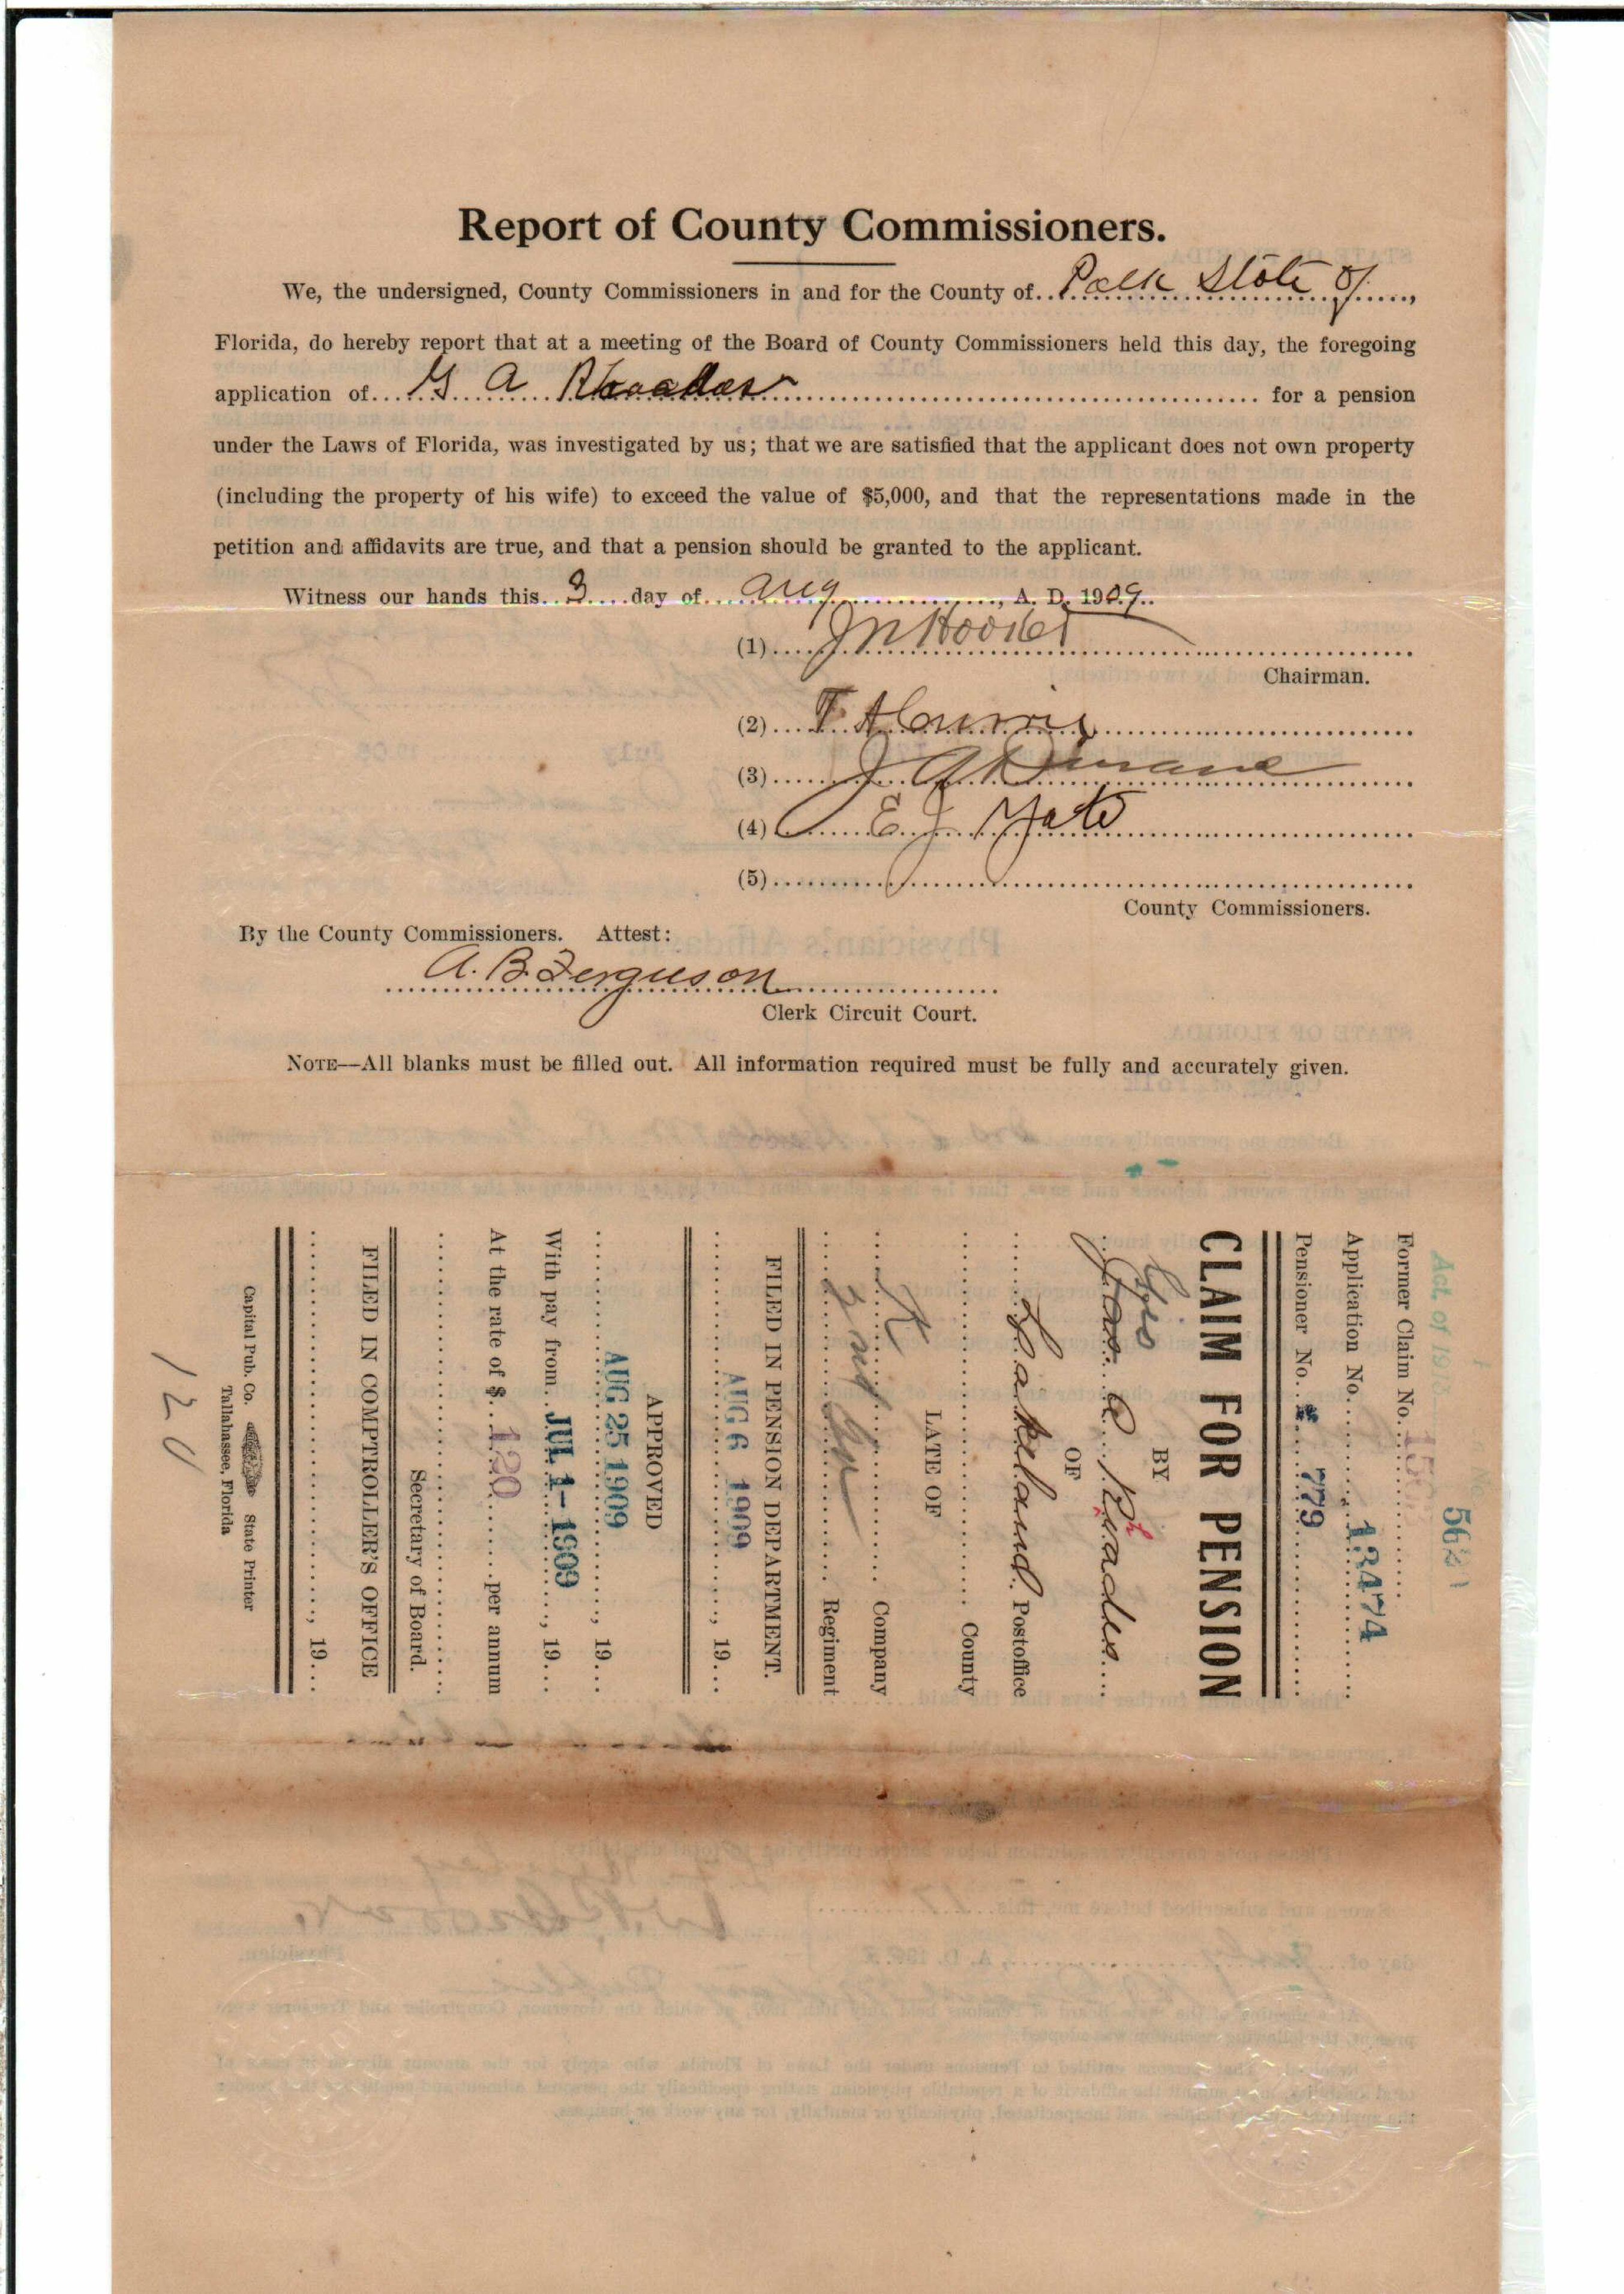 Report of County Commissioners.
We, the undersigned, County Commissioners in and for the County of Polk State of,
Florida, do hereby report that at a meeting of the Board of County Commissioners held this day, the foregoing
application of G A Rhoades for a pension
under the Laws of Florida, was investigated by us; that we are satisfied that the applicant does not own property
(including the property of his wife) to exceed the value of $5,000, and that the representations made in the
petition and affidavits are true, and that a pension should be granted to the applicant.
Witness our hands this 3 day of Aug, A. D. 1909.
(1) J N Hooker
Chairman.
(2) T A Currie
(3) J A
(4) E J Yate
(5)
County Commissioners.
By the County Commissioners. Attest:
A. B. Ferguson
Clerk Circuit Court.
NOTE—All blanks must be filled out. All information required must be fully and accurately given.
Act of 1913
Former Claim No.
Application No. 13474
Pensioner No. 779
CLAIM FOR PENSION
BY
Geo
Jas. A. Rhoades
OF
Lakeland. Postoffice
County
LATE OF
K Company
2nd Regiment
FILED IN PENSION DEPARTMENT.
AUG 6 1909, 19
APPROVED
AUG 25 1909, 19
With pay from JUL 1-1909, 19
At the rate of $ 120 per annum
Secretary of Board.
FILED IN COMPTROLLER'S OFFICE
, 19
Capital Pub. Co. State Printer
Tallahassee, Florida
120